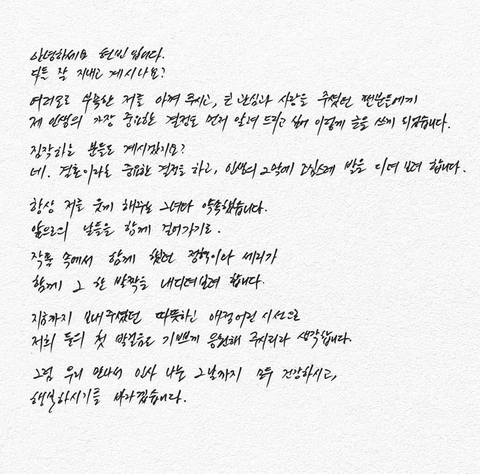 안녕하세요 현빈입니다.
다들 잘 지내고 계시나요?
여러모로 부족한 저를 아껴 주시고, 큰 관심과 사랑을 주셨던 팬분들에게
제 인생의 가장 중요한 결정도 먼저 알려 드리고 싶어 이렇게 글을 쓰게 되었습니다.
짐작하는 분들도 계시겠지요?
네. 결혼이라는 중요한 결정을 하고, 인생의 2막에 조심스레 발을 디뎌 보려 합니다.
항상 저를 웃게 해주는 그녀와 약속했습니다.
앞으로의 날들을 함께 걸어가기로.
작품 속에서 함께 했던 정혁이와 세리가
함께 그 한 발짝을 내디뎌보려 합니다.
지금까지 보내주셨던 따뜻하고 애정어린 시선으로
저희 둘의 첫 발걸음도 기쁘게 응원해 주시리라 생각합니다.
그럼 우리 만나서 인사 나눌 그날까지 모두 건강하시고,
행복하시기를 바라겠습니다.